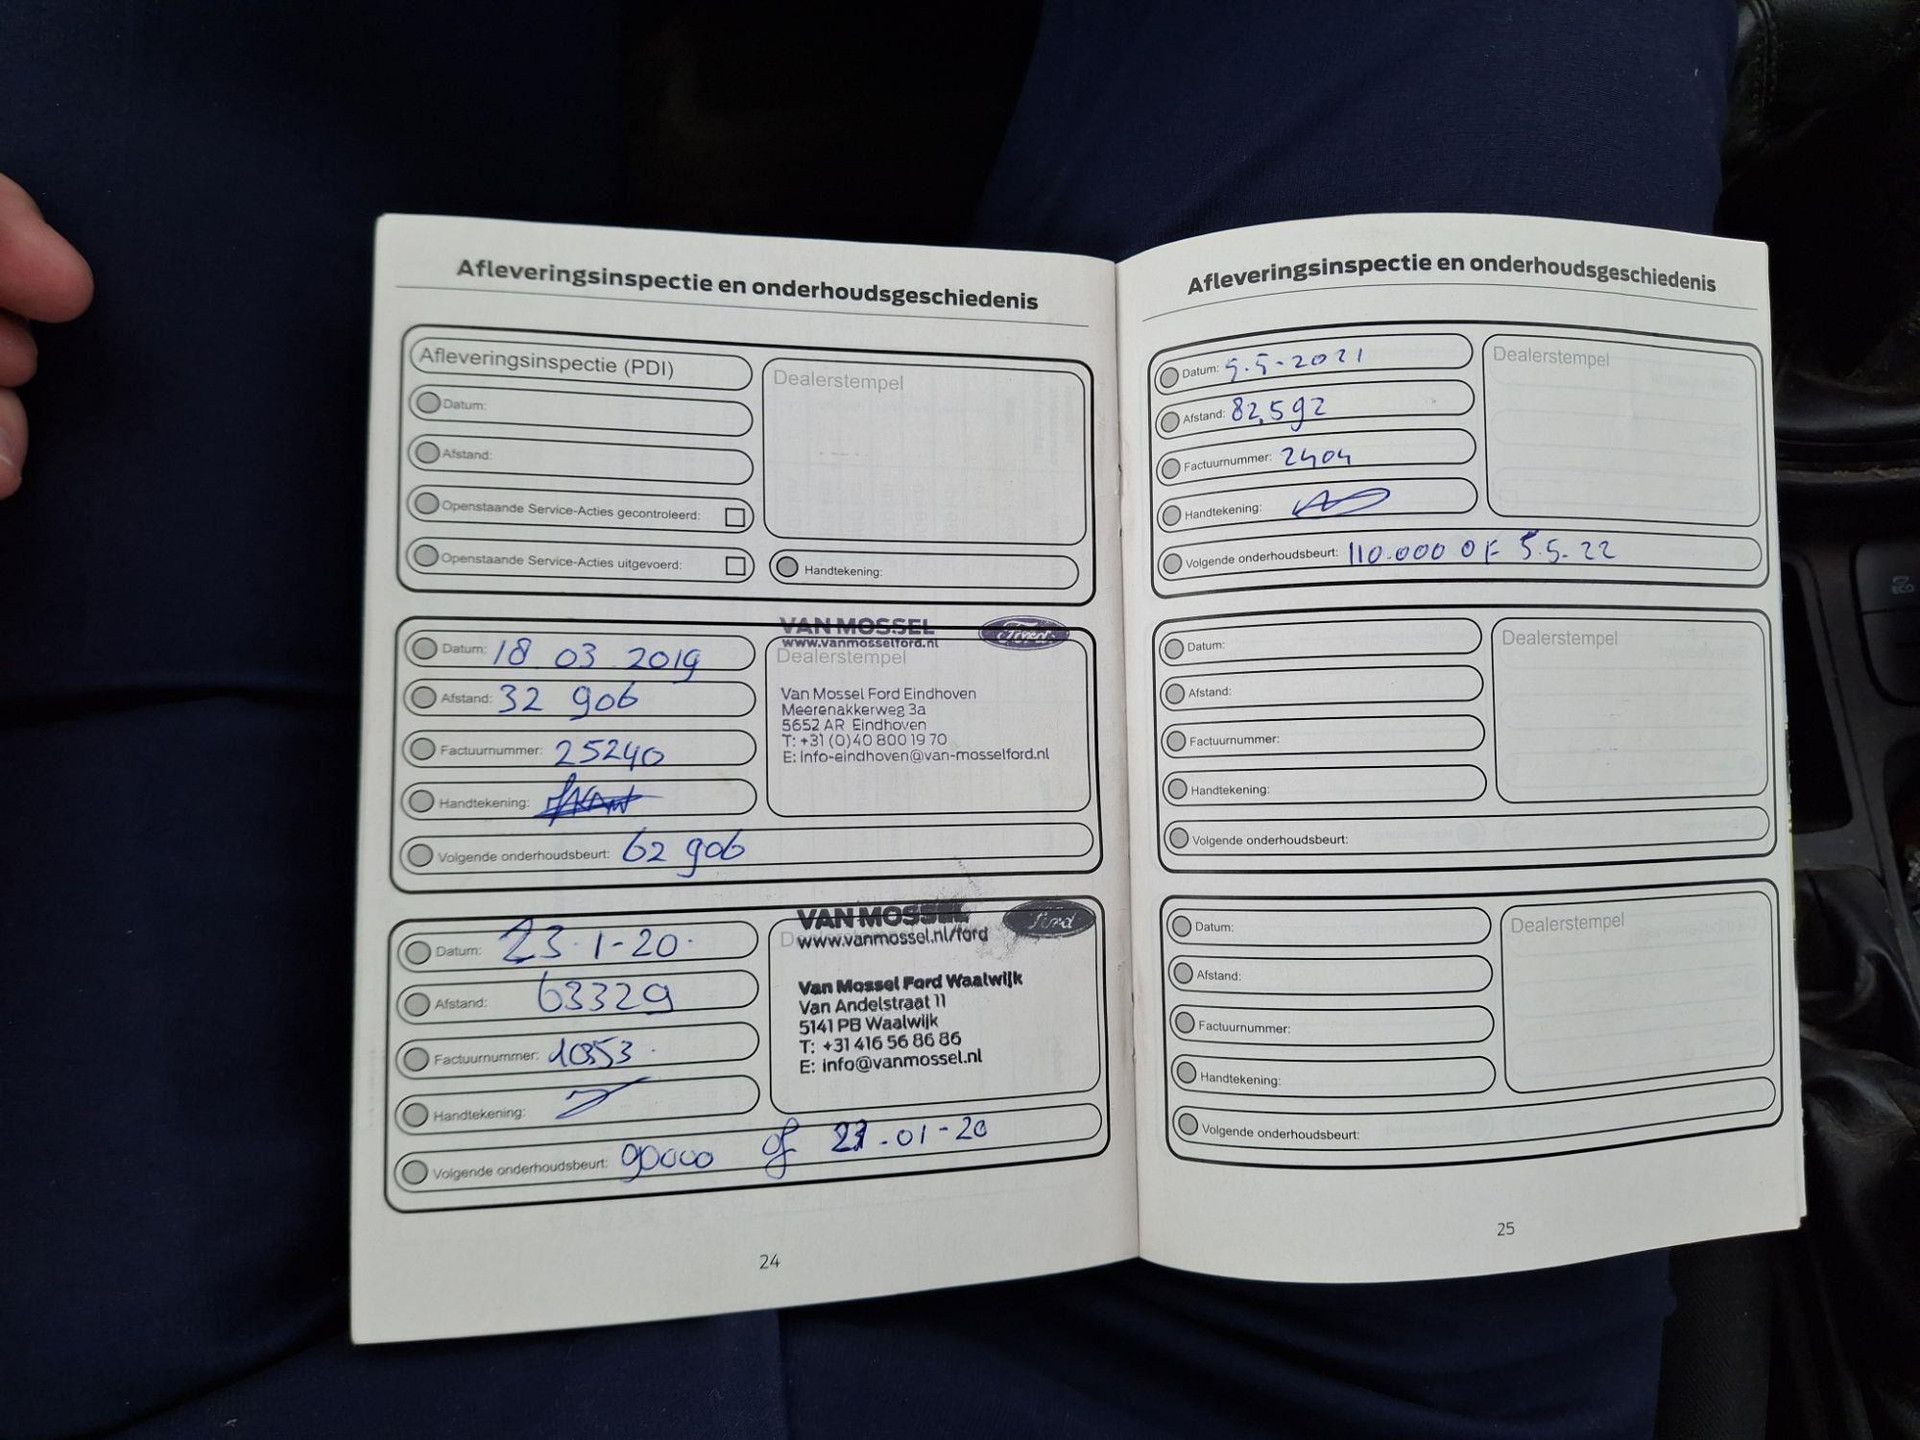 Afleveringsinspectie en onderhoudsgeschiedenis
Afleveringsinspectie (PDI)
Datum:
Afstand:
Openstaande Service-Acties gecontroleerd:
Openstaande Service-Acties uitgevoerd:
Dealerstempel
Handtekening:
Datum: 18 03 2019
Afstand: 32 906
Factuurnummer: 25240
Handtekening:
Volgende onderhoudsbeurt: 62 906
VAN MOSSEL Ford
www.vanmosselford.nl
Dealerstempel
Van Mossel Ford Eindhoven
Meerenakkerweg 3a
5652 AR Eindhoven
T: +31 (0)40 800 19 70
E: Info-eindhoven@van-mosselford.nl
Datum: 23-1-20.
Afstand: 63329
Factuurnummer: 10353.
Handtekening:
Volgende onderhoudsbeurt: 90000 of -01-20
VAN MOSSEL Ford
www.vanmossel.nl/ford
Van Mossel Ford Waalwijk
Van Andelstraat 11
5141 PB Waalwijk
T: +31 416 56 86 86
E: info@vanmossel.nl
24
Afleveringsinspectie en onderhoudsgeschiedenis
Datum: 5-5-2021
Afstand: 82.592
Factuurnummer: 2404
Handtekening:
Volgende onderhoudsbeurt: 110.000 OF 5.5.22
Dealerstempel
Datum:
Afstand:
Factuurnummer:
Handtekening:
Volgende onderhoudsbeurt:
Dealerstempel
Datum:
Afstand:
Factuurnummer:
Handtekening:
Volgende onderhoudsbeurt:
Dealerstempel
25
ECO